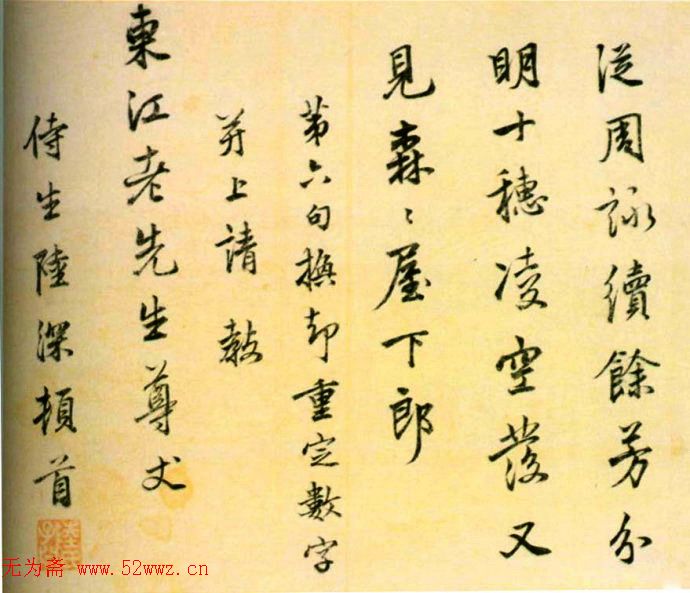 从周詠續餘芳分
明十穗凌空發又
見森〻屋下郎
第六句撫却重定數字
并上請教
東江老先生尊丈
侍生陸深頓首
无为斋 www.52wwz.cn